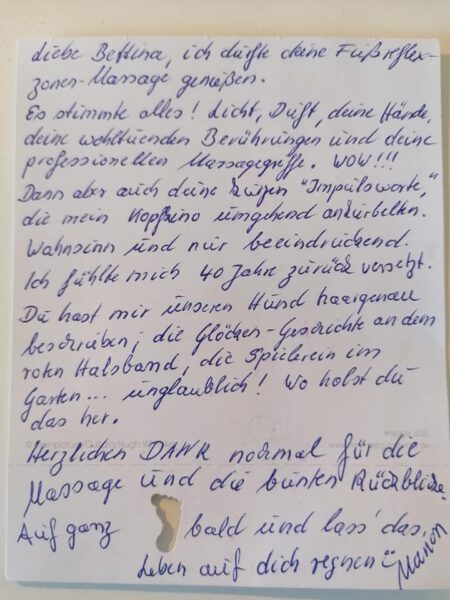 Liebe Bettina, ich durfte deine Fußreflex-
zonen-Massage genießen.
Es stimmte alles! Licht, Duft, deine Hände,
deine wohltuenden Berührungen und deine
professionellen Massagegriffe. WOW!!!
Dann aber auch deine kurzen "Impulsworte,"
die mein Kopfkino umgehend ankurbelten.
Wahnsinn und nur beeindruckend.
Ich fühlte mich 40 Jahre zurück versetzt.
Du hast mir unseren Hund haargenau
beschrieben; die Glöckchen-Geschichte an dem
roten Halsband, die Spielerein im
Garten... unglaublich! Wo holst du
das her.
Herzlichen DANK nochmal für die
Massage und die bunten Rückblicke.
Auf ganz bald und lass' das
Leben auf dich regnen
Manon